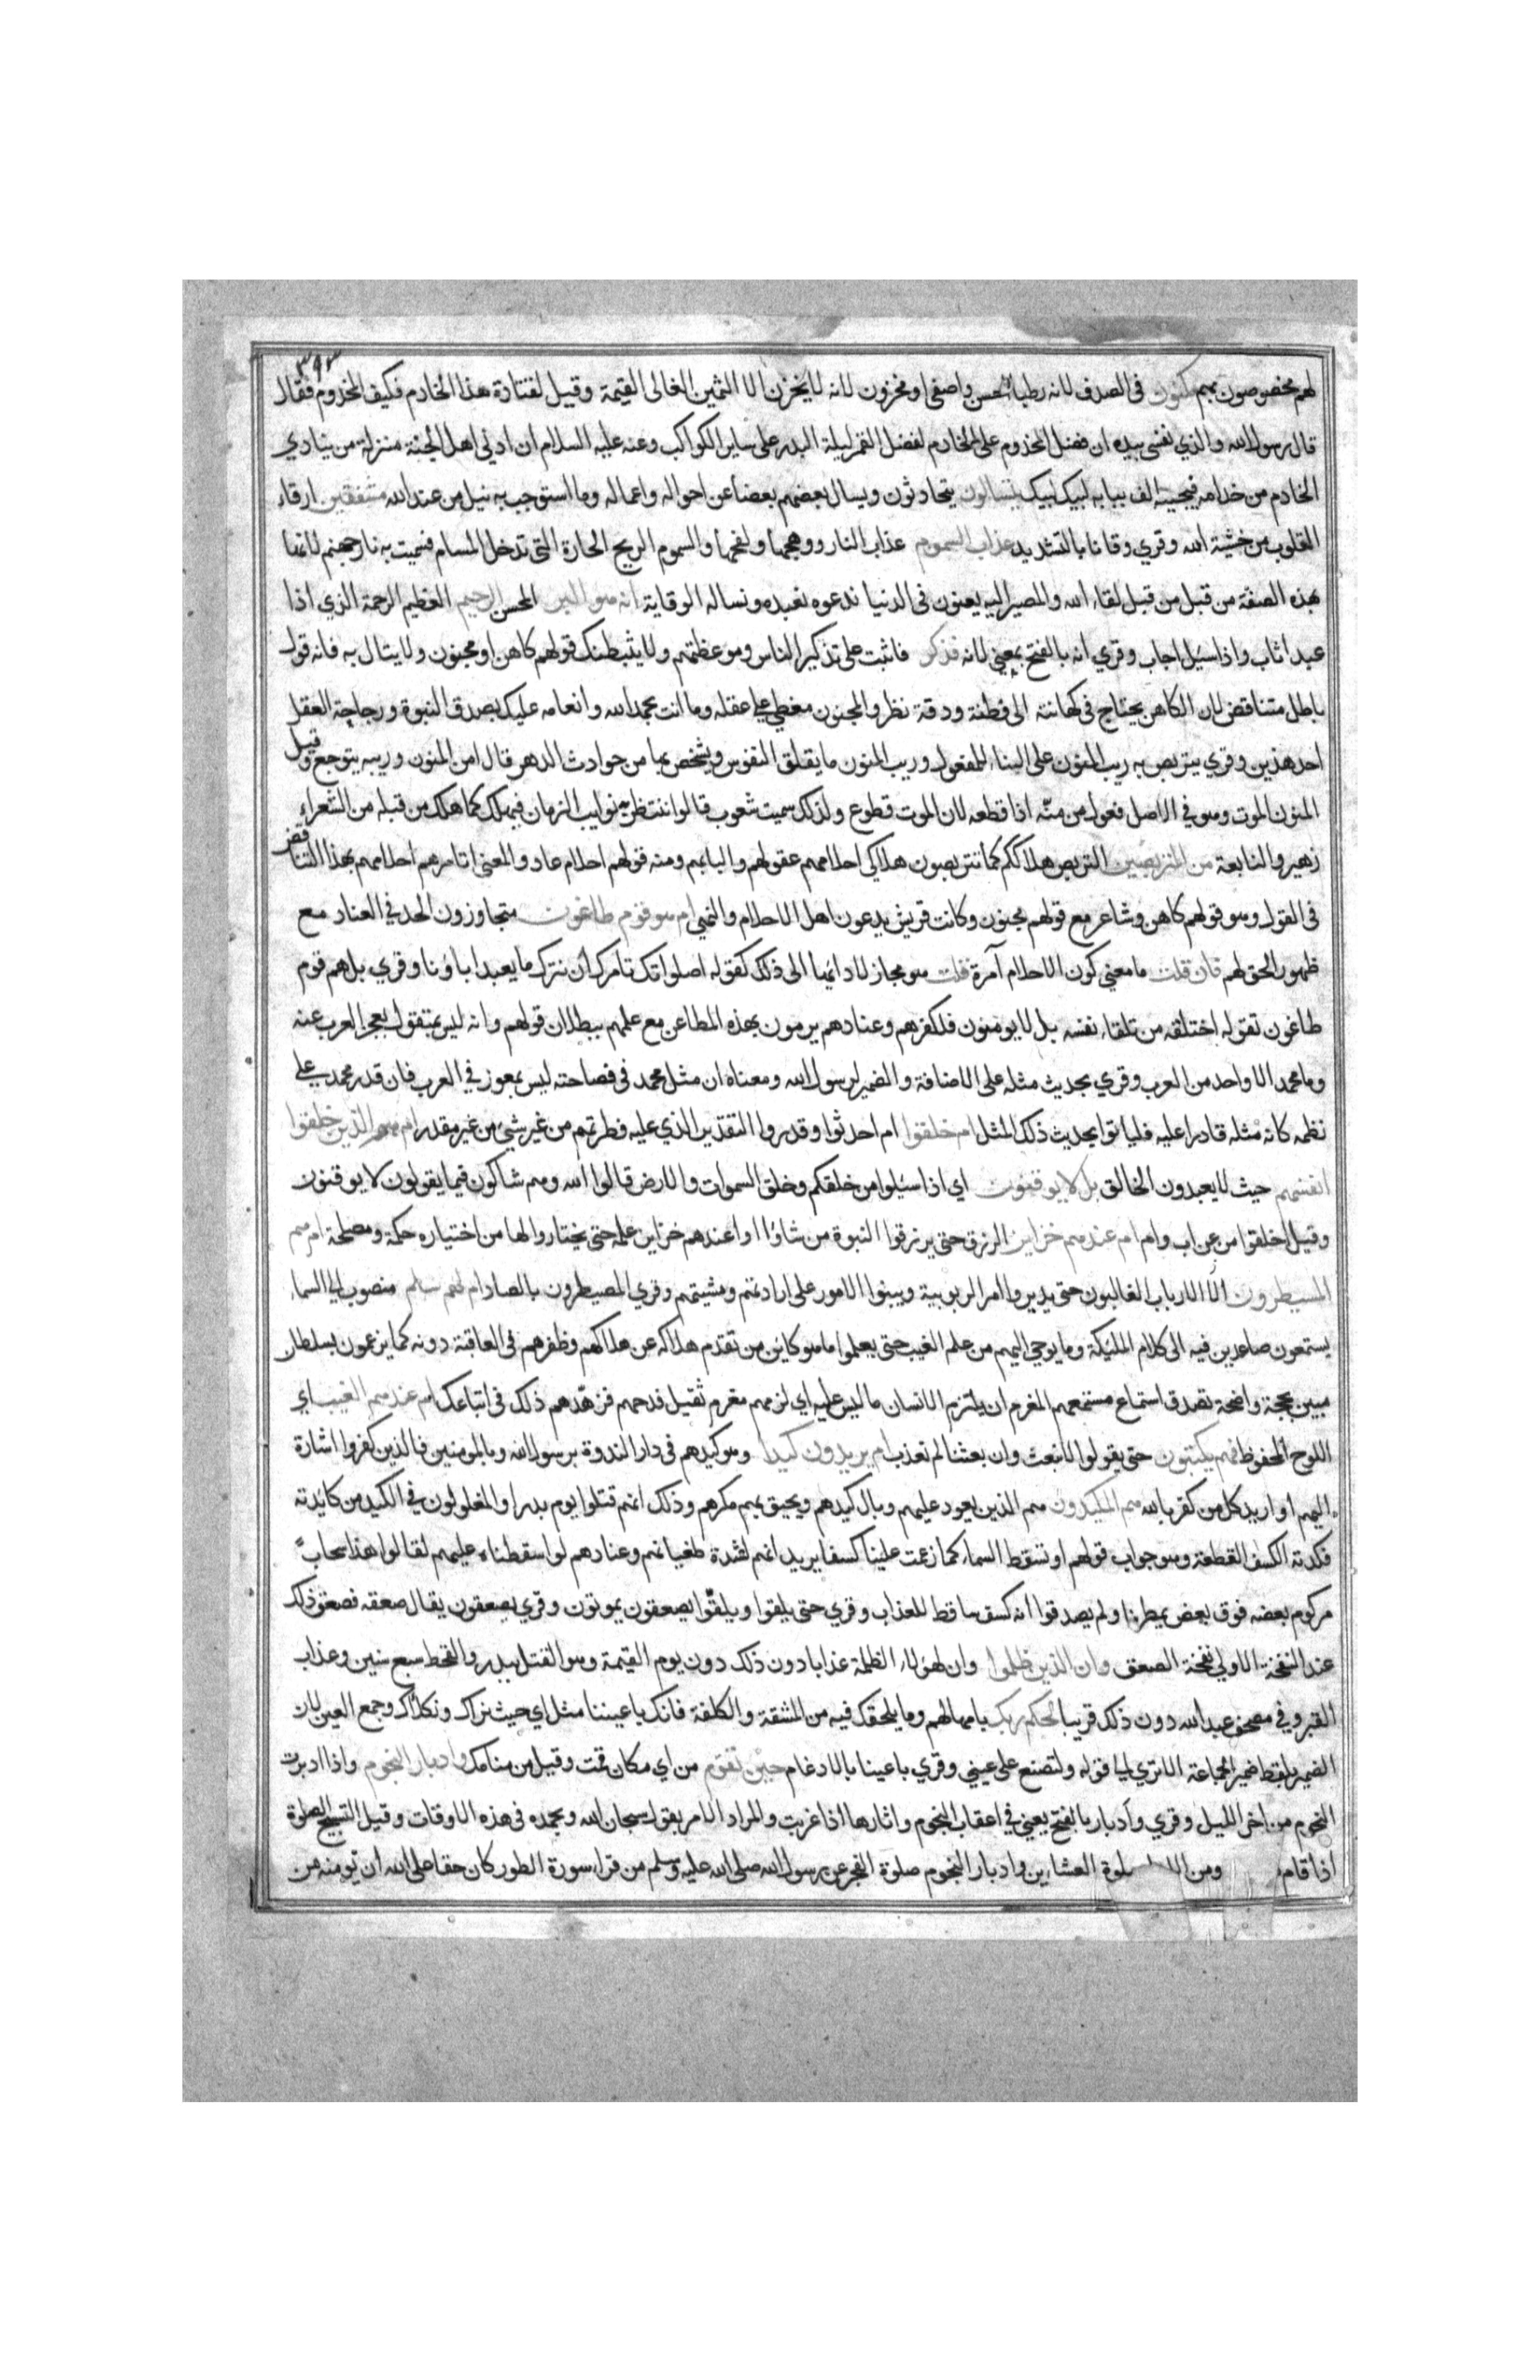 ٣٩٣
لهم مخصوصون بهم مكنون في الصدف لانه رطبا احسن واصفى او مخزون لانه لا يخزن الا الثمين الغالى القيمة وقيل لقتادة هذا الخادم فكيف المخدوم فقال
قال رسول الله والذي نفسى بيده ان فضل المخدوم على الخادم لفضل القمر ليلة البدر على ساير الكواكب وعنه عليه السلام ان ادنى اهل الجنة منزلة من ينادي
الخادم من خدامه فيجيبه الف ببابه لبيك لبيك يتسالون يتحادثون ويسال بعضهم بعضا عن احواله واعماله وما استوجب به نيل من عند الله مشفقين ارقاء
القلوب من خشية الله وقري وقانا بالتشديد عذاب السموم عذاب النار ووهجها ولفحها والسموم الريح الحارة التى تدخل المسام فسميت به نار جهنم لانها
بهذه الصفة من قبل من قبل لقاء الله والمصير اليه يعنون فى الدنيا ندعوه نعبده ونساله الوقاية انه هو البر المحسن الرحيم العظيم الرحمة الذي اذا
عبد اثاب واذا سئل اجاب وقري انه بالفتح بمعنى لانه فذكر فاثبت على تذكير الناس وموعظتهم ولا يثبطنك قولهم كاهن او مجنون ولا يبال به فانه قول
باطل متناقض لان الكاهن يحتاج فى كهانته الى فطنة ودقة نظر والمجنون مغطي على عقله وما انت بحمد الله وانعامه عليك بصدق النبوة ورجاجة العقل
احد هذين وقري يتربص به ريب المنون على البناء للمفعول وريب المنون ما يقلق النفوس ويشخص بها من حوادث الدهر قال امن المنون وريبه يتوجع وقيل
المنون الموت وهو في الاصل فعول من منه اذا قطعه لان الموت قطوع ولذلك سميت شعوب قالوا ننتظر به نوايب الزمان فيهلك كما هلك من قبله من الشعراء
زهير والنابغة من المتربصين التربص هلاككم كما تتربصون هلاكى احلامهم عقولهم والبابهم ومنه قولهم احلام عاد والمعنى اتامرهم احلامهم بهذا التناقض
فى القول وهو قولهم كاهن وشاعر مع قولهم مجنون وكانت قريش يدعون اهل الاحلام والنهى ام هو قوم طاغون متجاوزون الحد في العناد مع
ظهور الحق لهم فان قلت ما معنى كون الاحلام آمرة قلت هو مجاز لادائها الى ذلك كقوله اصلواتك تامرك ان نترك ما يعبد اباؤنا وقري بل هم قوم
طاغون تقوله اختلقه من تلقاء نفسه بل لا يومنون فلكفرهم وعنادهم يرمون بهذه المطاعن مع علمهم ببطلان قولهم وانه ليس بمتقول لعجز العرب عنه
وما محمد الا واحد من العرب وقري بحديث مثله على الاضافة والضمير لرسول الله ومعناه ان مثل محمد فى فصاحته ليس بمعوز في العرب فان قدر محمد على
نظمه كان مثله قادرا عليه فلياتوا بحديث ذلك المثل ام خلقوا ام احدثوا وقدروا التقدير الذي عليه فطرتهم من غير شئ من غير مقدر ام هم الذين خلقوا
انفسهم حيث لا يعبدون الخالق بل لا يوقنون اي اذا سئلوا من خلقكم وخلق السموات والارض قالوا الله وهم شاكون فيما يقولون لا يوقنون
وقيل اخلقوا من عن اب وام ام عندهم خزاين الرزق حتى يرزقوا النبوة من شاؤا او اعندهم خزاين علمه حتى يختاروا لها من اختياره حكمة ومصلحة ام هم
المسيطرون الا الارباب الغالبون حتى يدبروا امر الربوبية ويبنوا الامور على ارادتهم ومشيتهم وقري المصيطرون بالصاد ام لهم سلم منصوب الى السماء
يستمعون صاعدين فيه الى كلام الملئكة وما يوحى اليهم من علم الغيب حتى يعلموا ما هو كاين من تقدم هلاكه عن هلاكهم وظفرهم فى العاقبة دونه كما يزعمون بسلطان
مبين بحجة واضحة تصدق استماع مستمعهم المغرم ان يلتزم الانسان ما ليس عليه اي لزمهم مغرم ثقيل فدحهم فزهدهم ذلك فى اتباعك ام عندهم الغيب اي
اللوح المحفوظ فهم يكتبون حتى يقولوا لا نبعث وان بعثنا لم نعذب ام يريدون كيدا وهو كيدهم فى دار الندوة برسول الله وبالمومنين فالذين كفروا اشارة
اليهم او اريد كل من كفر بالله هم المكيدون هم الذين يعود عليهم وبال كيدهم ويحيق بهم مكرهم وذلك انهم قتلوا يوم بدر او المغلولون في الكيد من كايدته
فكدته الكسف القطعة وهو جواب قولهم او تسقط السماء كما زعمت علينا كسفا يريد انهم لشدة طغيانهم وعنادهم لو اسقطناه عليهم لقالوا هذا سحاب
مركوم بعضه فوق بعض يمطرنا ولم يصدقوا انه كسف ساقط للعذاب وقري حتى يلقوا ويلقوا يصعقون يموتون وقري يصعقون يقال صعقه فصعق وذلك
عند النفخة الاولى نفخة الصعق وان الذين ظلموا وان لهولاء الظلمة عذابا دون ذلك دون يوم القيمة وهو القتل ببدر والقحط سبع سنين وعذاب
القبر وفي مصحف عبد الله دون ذلك قريبا لحكم ربك بامهالهم وما يلحقك فيه من المشقة والكلفة فانك باعيننا مثل اي حيث نراك ونكلأك وجمع العين لان
الضمير بلفظ ضمير الجماعة الا تري الى قوله ولتصنع على عيني وقري باعينا بالادغام حين تقوم من اي مكان قمت وقيل من منامك وادبار النجوم واذا ادبرت
النجوم من اخر الليل وقري وادبار بالفتح يعنى في اعقاب النجوم واثارها اذا غربت والمراد الامر بقول سبحان الله وبحمده فى هذه الاوقات وقيل التسبيح الصلوة
اذا قام ومن صلوة العشاءين وادبار النجوم صلوة الفجر عن رسول الله صلى الله عليه وسلم من قرا سورة الطور كان حقا على الله ان يومنه من